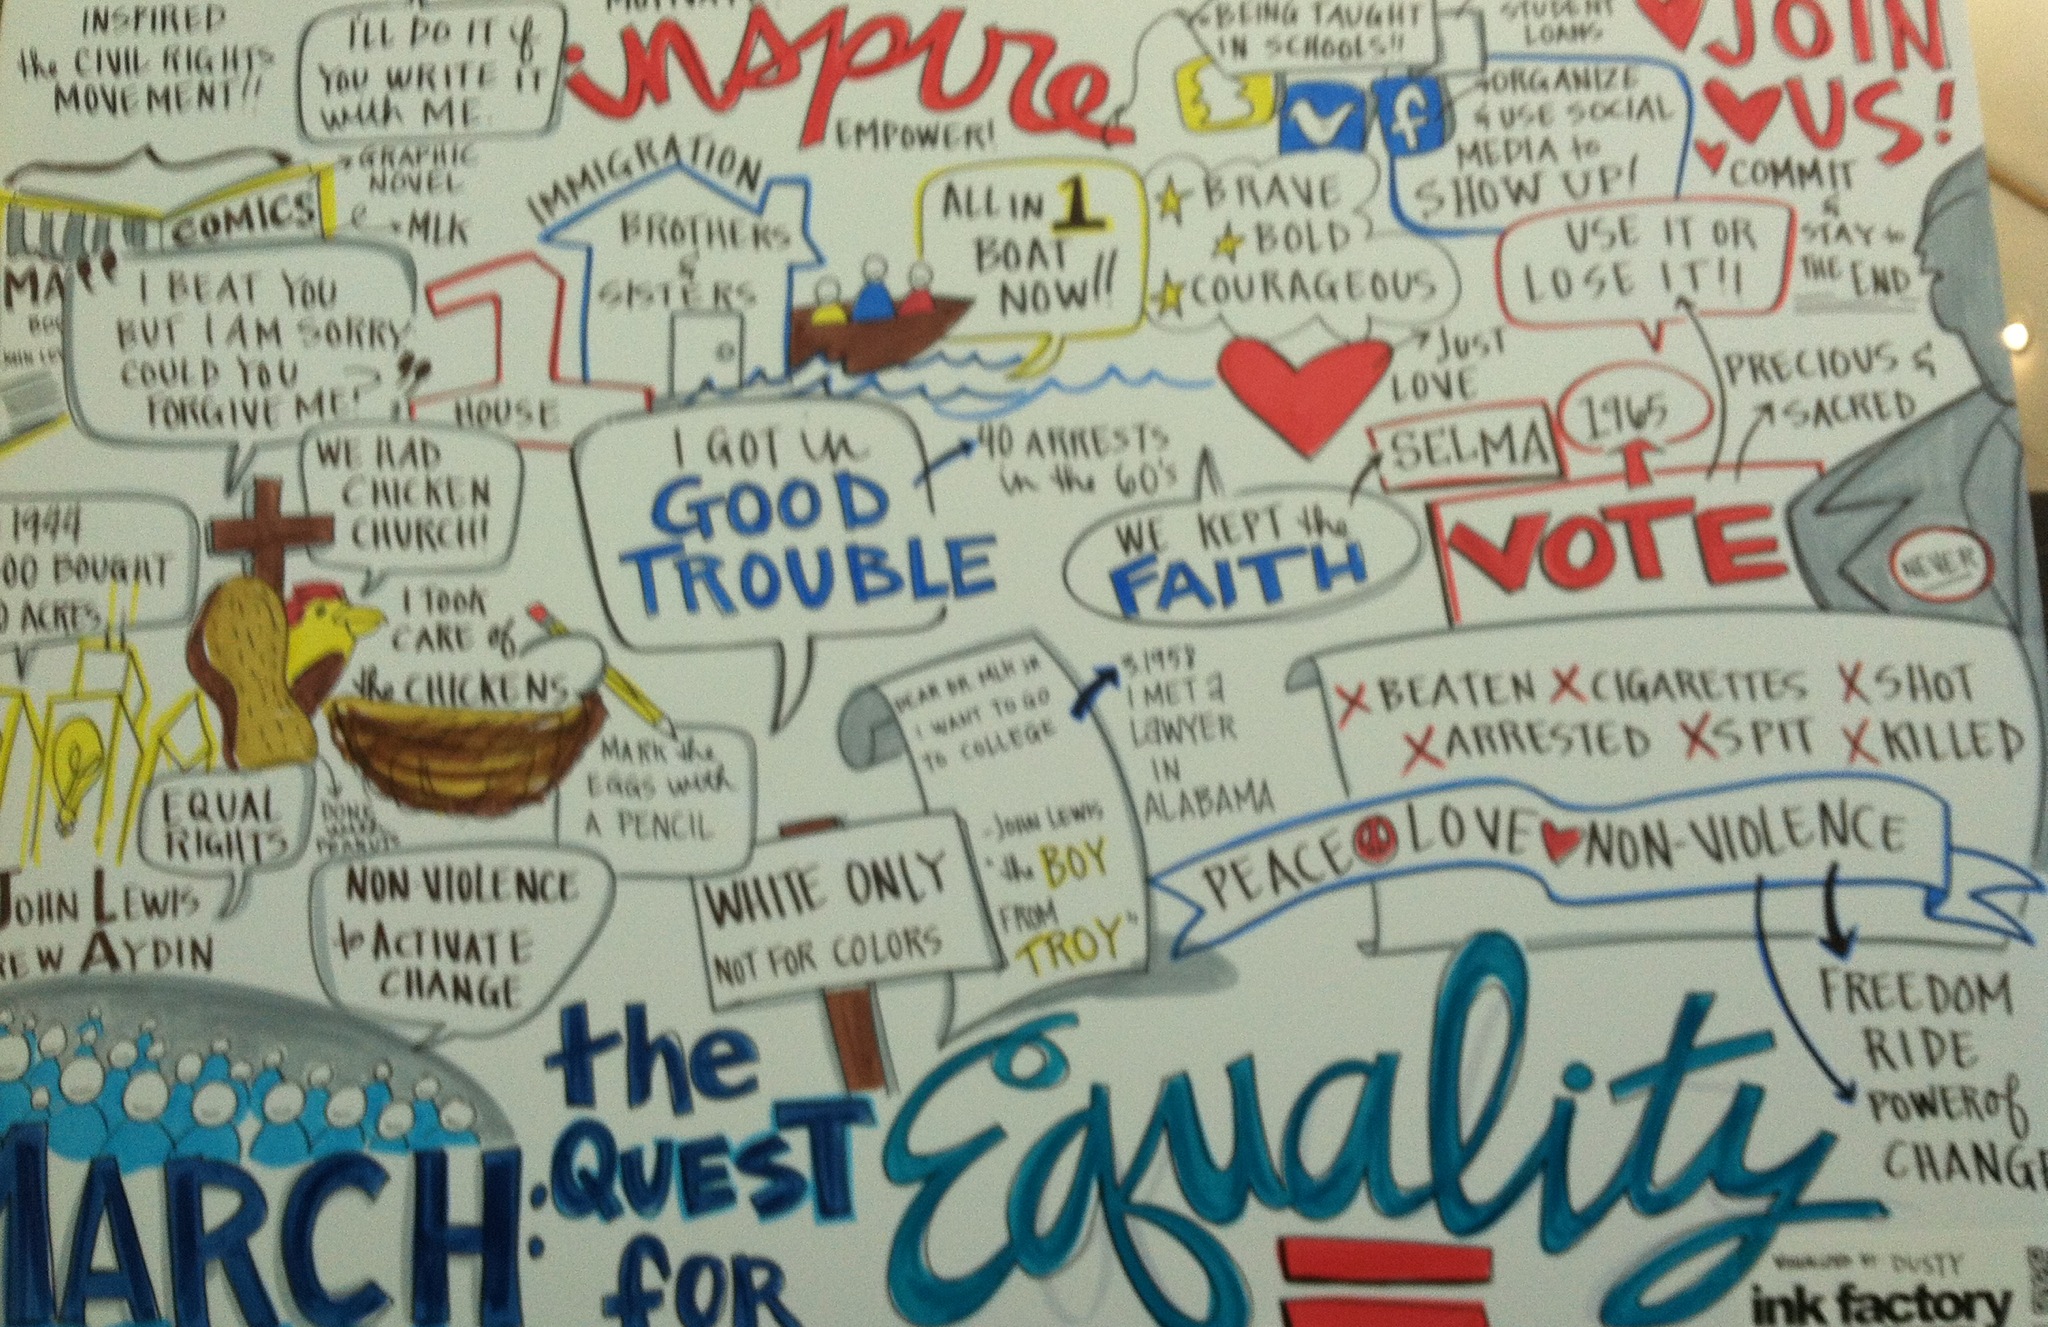 INSPIRED
the CIVIL RIGHTS
MOVEMENT!!
I'LL DO IT if
YOU WRITE IT
with ME.
inspire
EMPOWER!
BEING TAUGHT
IN SCHOOLS!!
STUDENT
LOANS
JOIN
US!
ORGANIZE
& USE SOCIAL
MEDIA to
SHOW UP!
f
COMMIT
&
STAY to
THE END
COMICS
GRAPHIC
NOVEL
MLK
IMMIGRATION
BROTHERS
&
SISTERS
1
HOUSE
ALL IN 1
BOAT
NOW!!
BRAVE
BOLD
COURAGEOUS
USE IT OR
LOSE IT!!
"I BEAT YOU
BUT I AM SORRY
COULD YOU
FORGIVE ME?"
JUST
LOVE
SELMA
1965
PRECIOUS &
SACRED
WE HAD
CHICKEN
CHURCH!
I GOT in
GOOD
TROUBLE
40 ARRESTS
in the 60's
WE KEPT the
FAITH
VOTE
NEVER
1944
00 BOUGHT
ACRES
I TOOK
CARE of
the CHICKENS
MARK the
EGGS with
A PENCIL
DEAR DR. MLK JR
I WANT TO GO
TO COLLEGE
-JOHN LEWIS
"the BOY
FROM
TROY"
1958
I MET a
LAWYER
IN
ALABAMA
X BEATEN X CIGARETTES X SHOT
X ARRESTED X SPIT X KILLED
PEACE LOVE NON-VIOLENCE
EQUAL
RIGHTS
JOHN LEWIS
REW AYDIN
NON-VIOLENCE
to ACTIVATE
CHANGE
WHITE ONLY
NOT FOR COLORS
FREEDOM
RIDE
POWER of
CHANGE
MARCH:
the
QUEST
for
Equality
DUSTY
ink factory